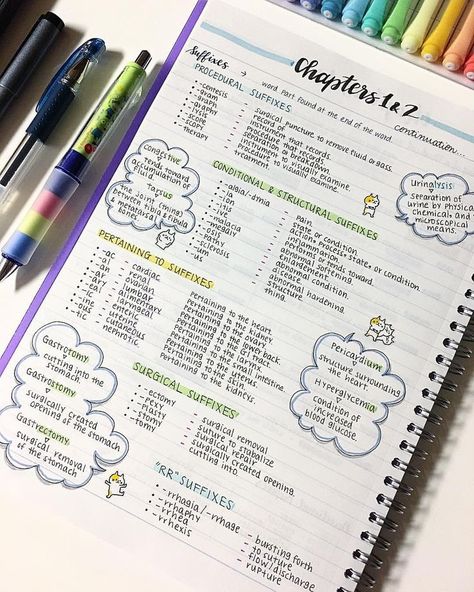 Suffixes → word part found at the end of the word
Chapters 1 & 2
continuation...
PROCEDURAL SUFFIXES
- -centesis - surgical puncture to remove fluid or gass.
- -gram - record.
- -graph - instrument that records.
- -graphy - procedure that records.
- -lysis - separation or breakdown.
- -scope - instrument to visually examine.
- -scopy - procedure to visually examine.
- -therapy - treatment.
Congestive
tends toward
accumulation of
Tarsus
the joint (thing)
between tibia & fibula
& metatarsal & foot
bones
Urinalysis:
separation of
urine by physical,
chemical and
microscopical
means.
CONDITIONAL & STRUCTURAL SUFFIXES
- -algia/-dynia - pain.
- -ia - state or condition.
- -ion - action, process, state, or condition.
- -itis - inflammation.
- -ive - performs or tends toward.
- -malacia - abnormal softening.
- -megaly - enlargement.
- -osis - abnormal condition.
- -pathy - disease.
- -sclerosis - abnormal hardening.
- -um - structure.
- -us - thing.
PERTAINING TO SUFFIXES
- -ac - cardiac - pertaining to the heart.
- -al - renal - pertaining to the kidney.
- -an - ovarian - pertaining to the ovary.
- -ar - lumbar - pertaining to the lower back.
- -ary - alimentary - pertaining to the GI tract.
- -eal - laryngeal - pertaining to the larynx.
- -ic - enteric - pertaining to the small intestine.
- -ine - uterine - pertaining to the uterus.
- -ous - cutaneous - pertaining to the skin.
- -tic - nephrotic - pertaining to the kidneys.
Pericardium
structure surrounding
the heart.
Hyperglycemia
condition of
increased
blood glucose.
Gastrotomy
cutting into the
stomach
Gastrostomy
surgically created
opening of the stomach
Gastrectomy
surgical removal
of the stomach
SURGICAL SUFFIXES
- -ectomy - surgical removal
- -pexy - suture to stabalize
- -plasty - surgical repair
- -stomy - surgically created opening.
- -tomy - cutting into.
"RR" SUFFIXES
- -rrhagia/-rrhage - bursting forth
- -rrhaphy - to suture
- -rrhea - flow/discharge
- -rrhexis - rupture